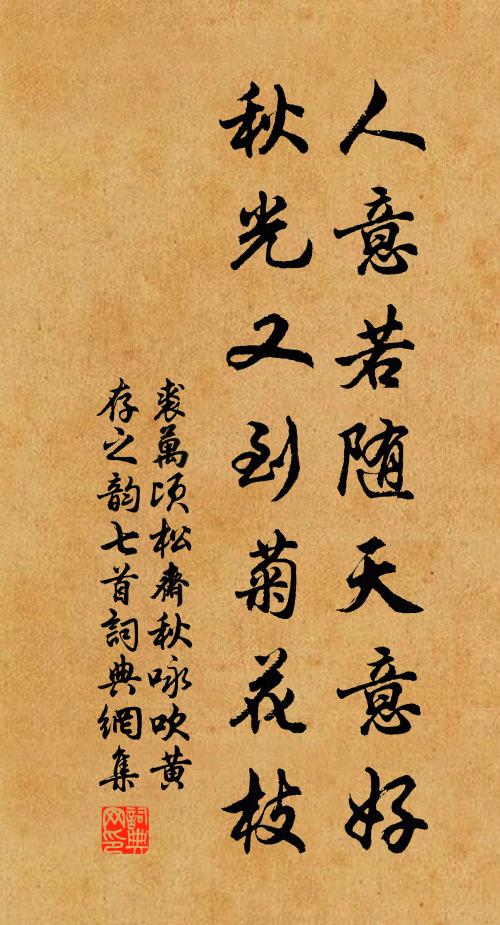 人意若随天意好
秋光又到菊花枝
裘萬頃松齋秋咏吹黄
存之韵七首詞典網集
詞典网印